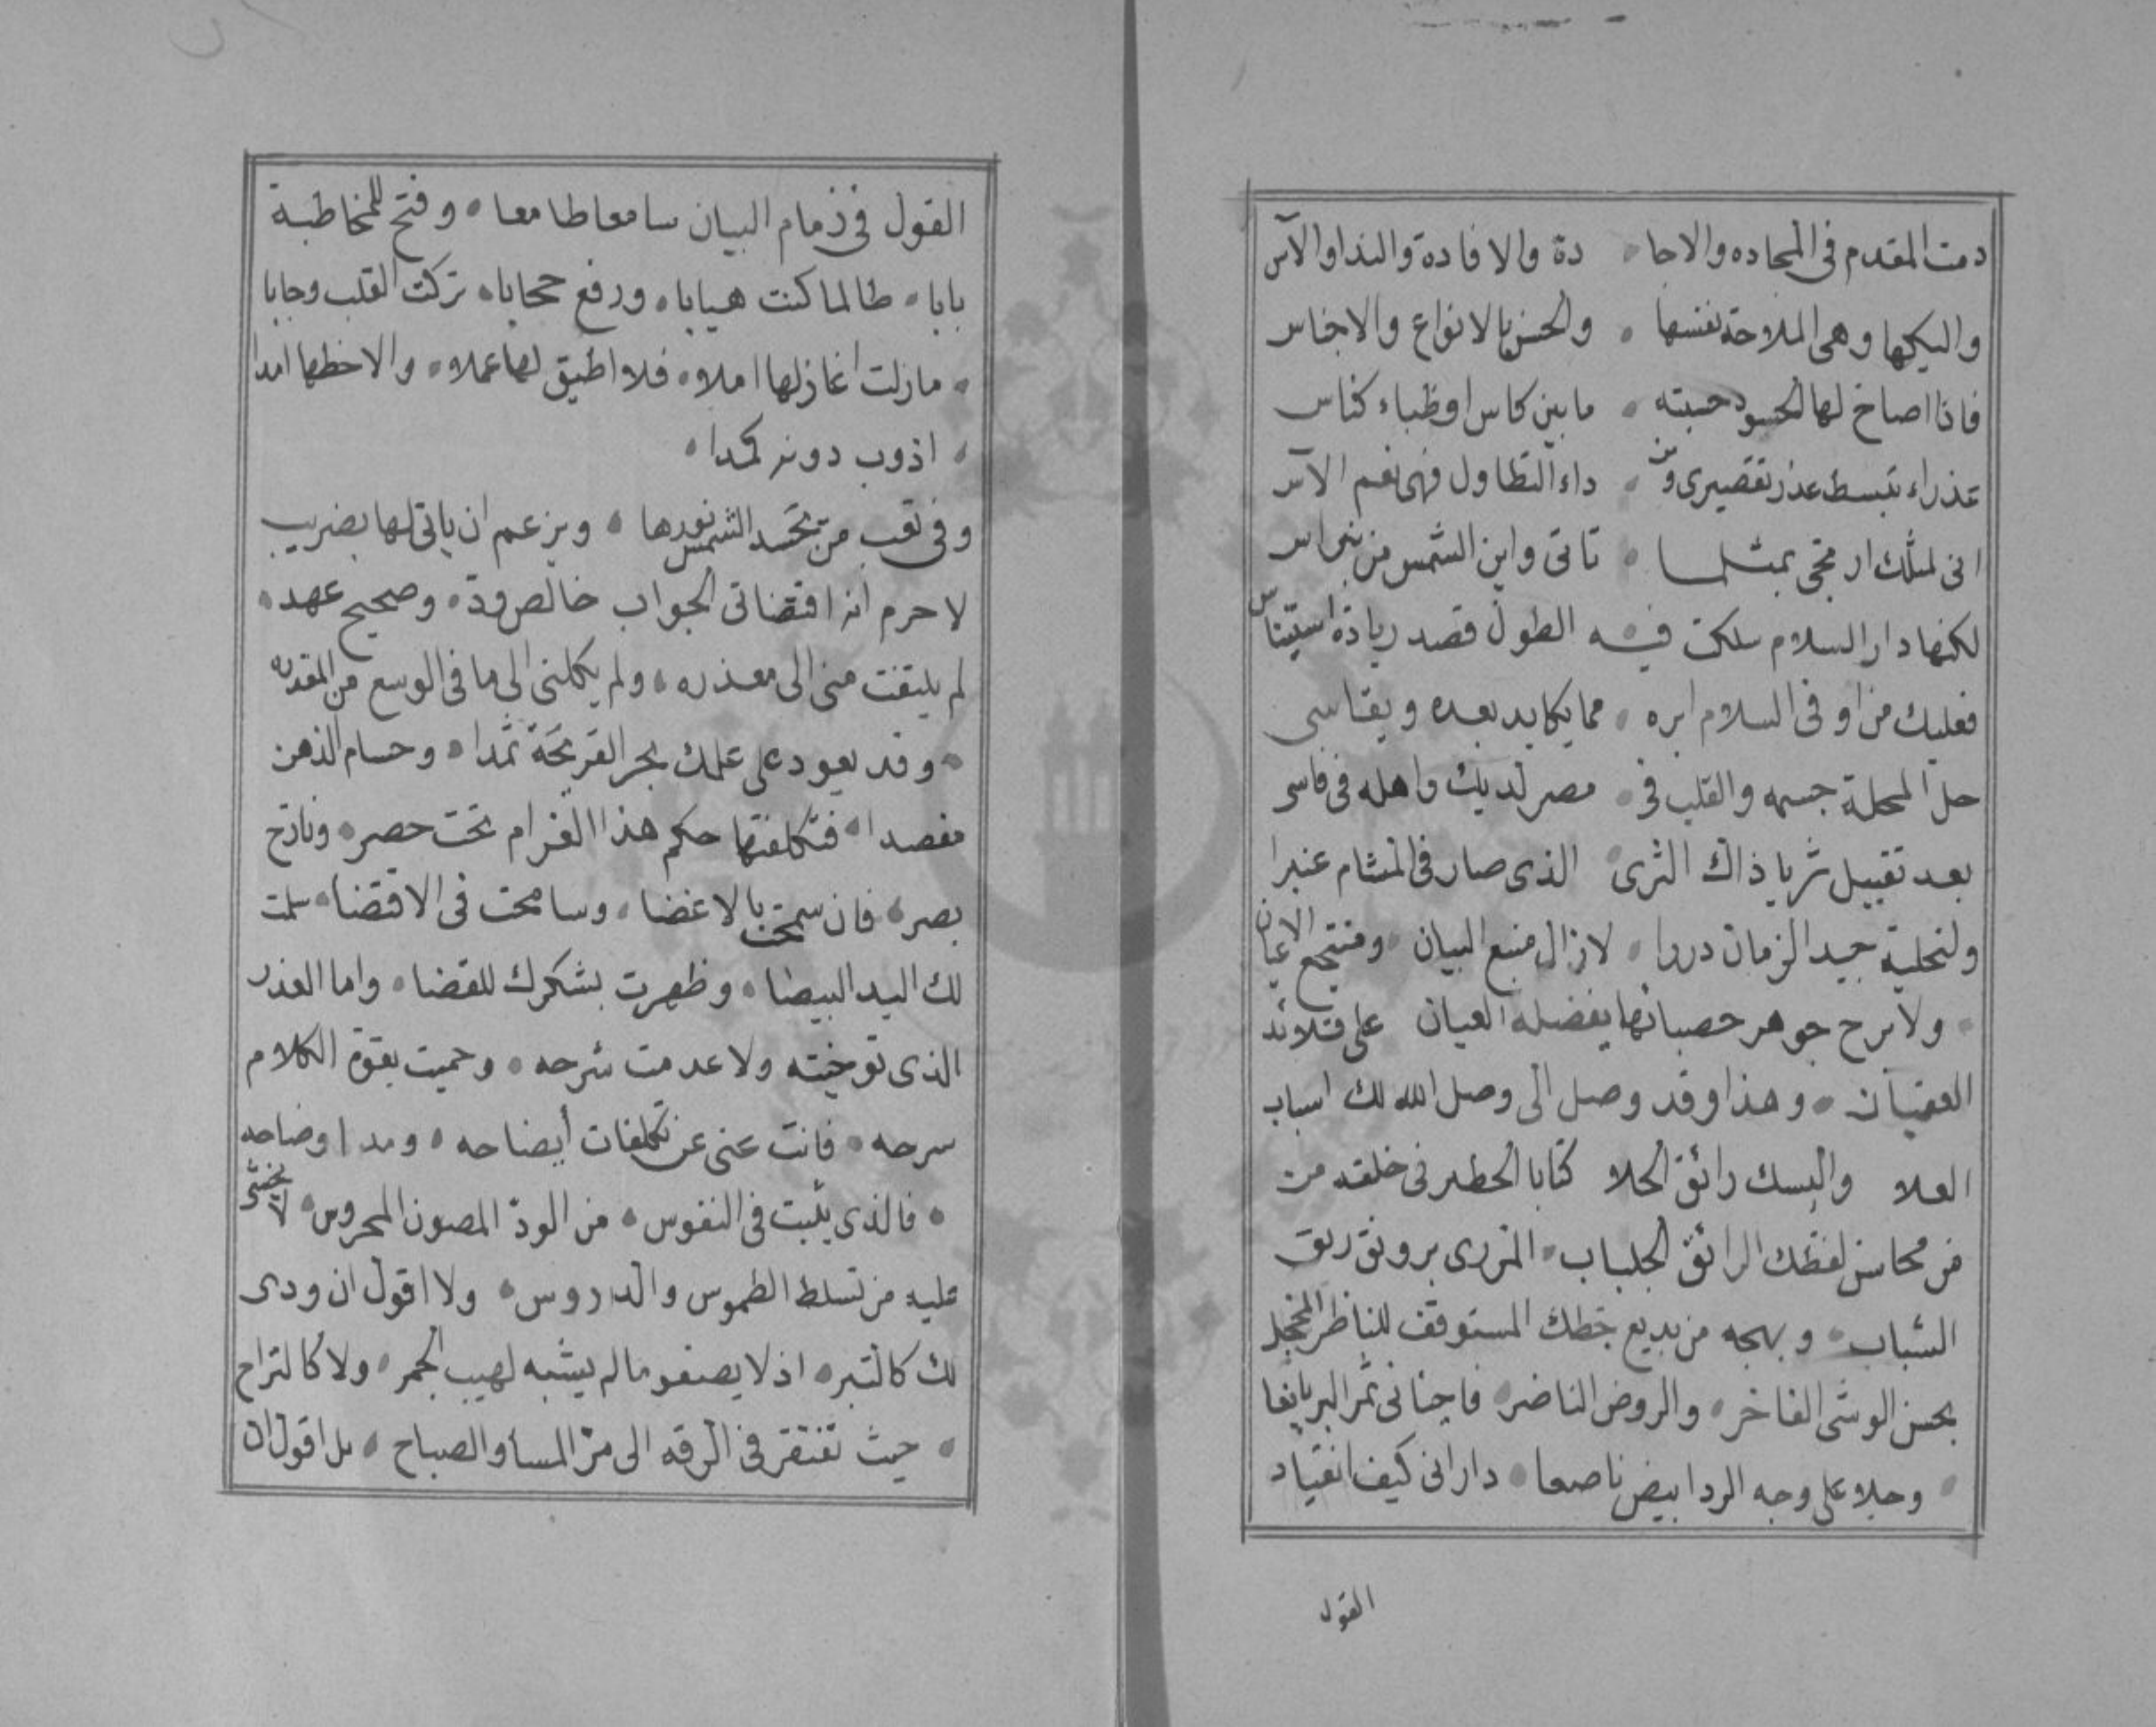 دمت المقدم فى المجاده والاجا ٠ دة والافادة والندا والآس
واليكها وهى الملاحة نفسها ٠ والحسن بالانواع والاجناس
فاذا اصاخ لها الحسود حسبته ٠ ما بين كاس او ظباء كناس
عذراء تبسط عذر تقصيرى ومن ٠ داء التطاول فهى نعم الآس
انى لمثلك ارتجى بمثلها ٠ تاتى واين الشمس من نبراس
لكنها دار السلام سلكت فيه الطول قصد ريادة استيناس
فعليك من اوفى السلام ابره ٠ مما يكابد بعده ويقاسى
حل المحلة جسمه والقلب فى ٠ مصر لديك واهله فى فاس
بعد تقبيل ثريا ذاك الثرى الذى صار فى المشام عنبرا
ولتحلية جيد الزمان دررا ٠ لازال منبع البيان ٠ ومنتجع الاعيان
٠ ولا برح جوهر حصبائها يفضله العيان على قلائد
العقيان ٠ وهذا وقد وصل الى وصل الله لك اسباب
العلا والبسك رائق الحلا كتابا الحطير فى خلقه من
من محاسن لفظك الرائق الجلباب ٠ المزرى برونق ريق
الشباب ٠ وبهجه من بديع خطك المستوقف للناظر المخجل
بحسن الوشى الفاخر ٠ والروض الناضر ٠ فاجنانى ثمر البر يانعا
٠ وجلا على وجه الردا ابيض ناصعا ٠ دارانى كيف انقياد
القول
القول فى زمام البيان سامعا طامعا ٠ وفتح للمخاطبة
بابا ٠ طالما كنت هيابا ٠ ورفع حجابا ٠ تركت القلب وجابا
٠ مازلت اغازلها املا ٠ فلا اطيق لها عملا ٠ والاحظها امدا
٠ اذوب دونه كمدا ٠
وفى تعب من تحسد الشمس نورها ٠ ويزعم ان ياتى لها بضريب
لاجرم انه اقتضانى الجواب خالص وده ٠ وصحيح عهده ٠
لم يلتفت منى الى معذره ٠ ولم يكلنى الى ما فى الوسع من المقدره
٠ وقد يعود على علمك بحر القريحة ثمدا ٠ وحسام الذهن
مغصدا ٠ فتكلفتها حكم هذا الغرام تحت حصر ٠ ونازح
بصر ٠ فان سمحت بالاغضا ٠ وسامحت فى الاقتضا ٠ سلمت
لك اليد البيضا ٠ وظهرت بشكرك للقضا ٠ واما العذر
الذى توخيته ولا عدمت شرحه ٠ وحميت بقوة الكلام
سرحه ٠ فانت غنى عن تكلفات أيضاحه ٠ ومدا اوضاحه
٠ فالذى يثبت فى النفوس ٠ من الود المصون المحروس ٠ لا يخشى
عليه من تسلط الطموس والدروس ٠ ولا اقول ان ودى
لك كالتبر ٠ اذ لا يصفو ما لم يشبه لهيب الجمر ٠ ولا كالتراح
٠ حيث تفتقر فى الرقه الى مر المسا والصباح ٠ بل اقول ان